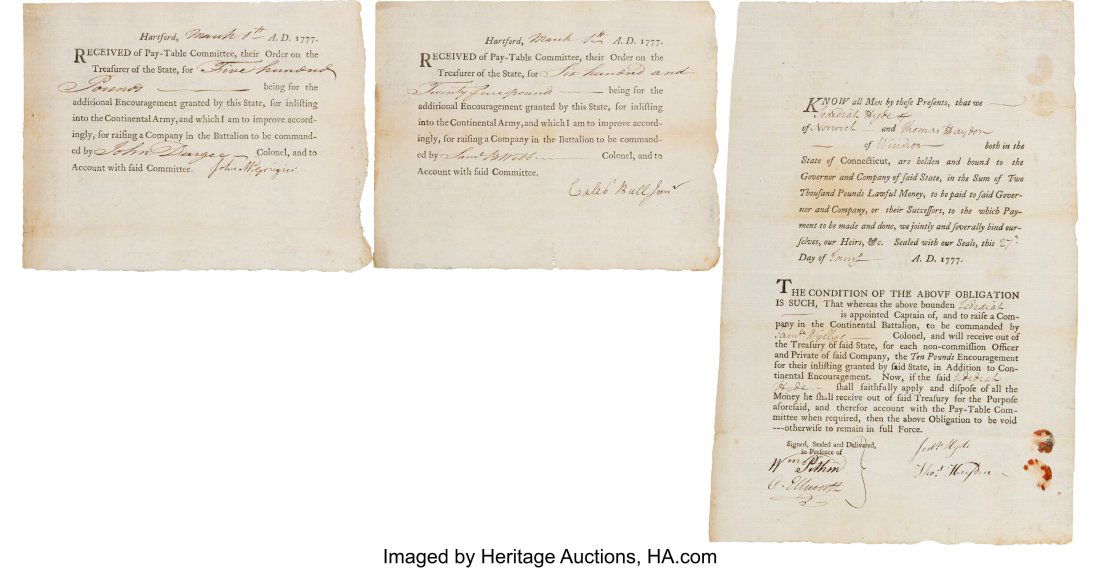 Hartford, March 1th A. D. 1777.
RECEIVED of Pay-Table Committee, their Order on the
Treasurer of the State, for Five hundred
Pounds being for the
additional Encouragement granted by this State, for inlisting
into the Continental Army, and which I am to improve accord-
ingly, for raising a Company in the Battalion to be command-
ed by John Durgee Colonel, and to
Account with said Committee. John McGregier
Hartford, March 1th A. D. 1777.
RECEIVED of Pay-Table Committee, their Order on the
Treasurer of the State, for Six hundred and
Twenty five pounds being for the
additional Encouragement granted by this State, for inlisting
into the Continental Army, and which I am to improve accord-
ingly, for raising a Company in the Battalion to be command-
ed by Saml B Webb Colonel, and to
Account with said Committee.
Caleb Bull Junr
KNOW all Men by these Presents, that we
Jedediah Hyde
of Norwich and Thomas Haydon
of Windsor both in the
State of Connecticut, are holden and bound to the
Governor and Company of said State, in the Sum of Two
Thousand Pounds Lawful Money, to be paid to said Gover-
nor and Company, or their Successors, to the which Pay-
ment to be made and done, we jointly and severally bind our-
selves, our Heirs, &c. Sealed with our Seals, this 27th
Day of Jany A. D. 1777.
THE CONDITION OF THE ABOVF OBLIGATION
IS SUCH, That whereas the above bounden Jedediah
is appointed Captain of, and to raise a Com-
pany in the Continental Battalion, to be commanded by
Saml Wyllys Colonel, and will receive out of
the Treasury of said State, for each non-commission Officer
and Private of said Company, the Ten Pounds Encouragement
for their inlisting granted by said State, in Addition to Con-
tinental Encouragement. Now, if the said Jedediah
Hyde shall faithfully apply and dispose of all the
Money he shall receive out of said Treasury for the Purpose
aforesaid, and therefor account with the Pay-Table Com-
mittee when required, then the above Obligation to be void
---otherwise to remain in full Force.
Signed, Sealed and Delivered,
in Presence of
Wm Pitkin
O. Ellsworth
Jedh Hyde
Thos. Hayden
Imaged by Heritage Auctions, HA.com